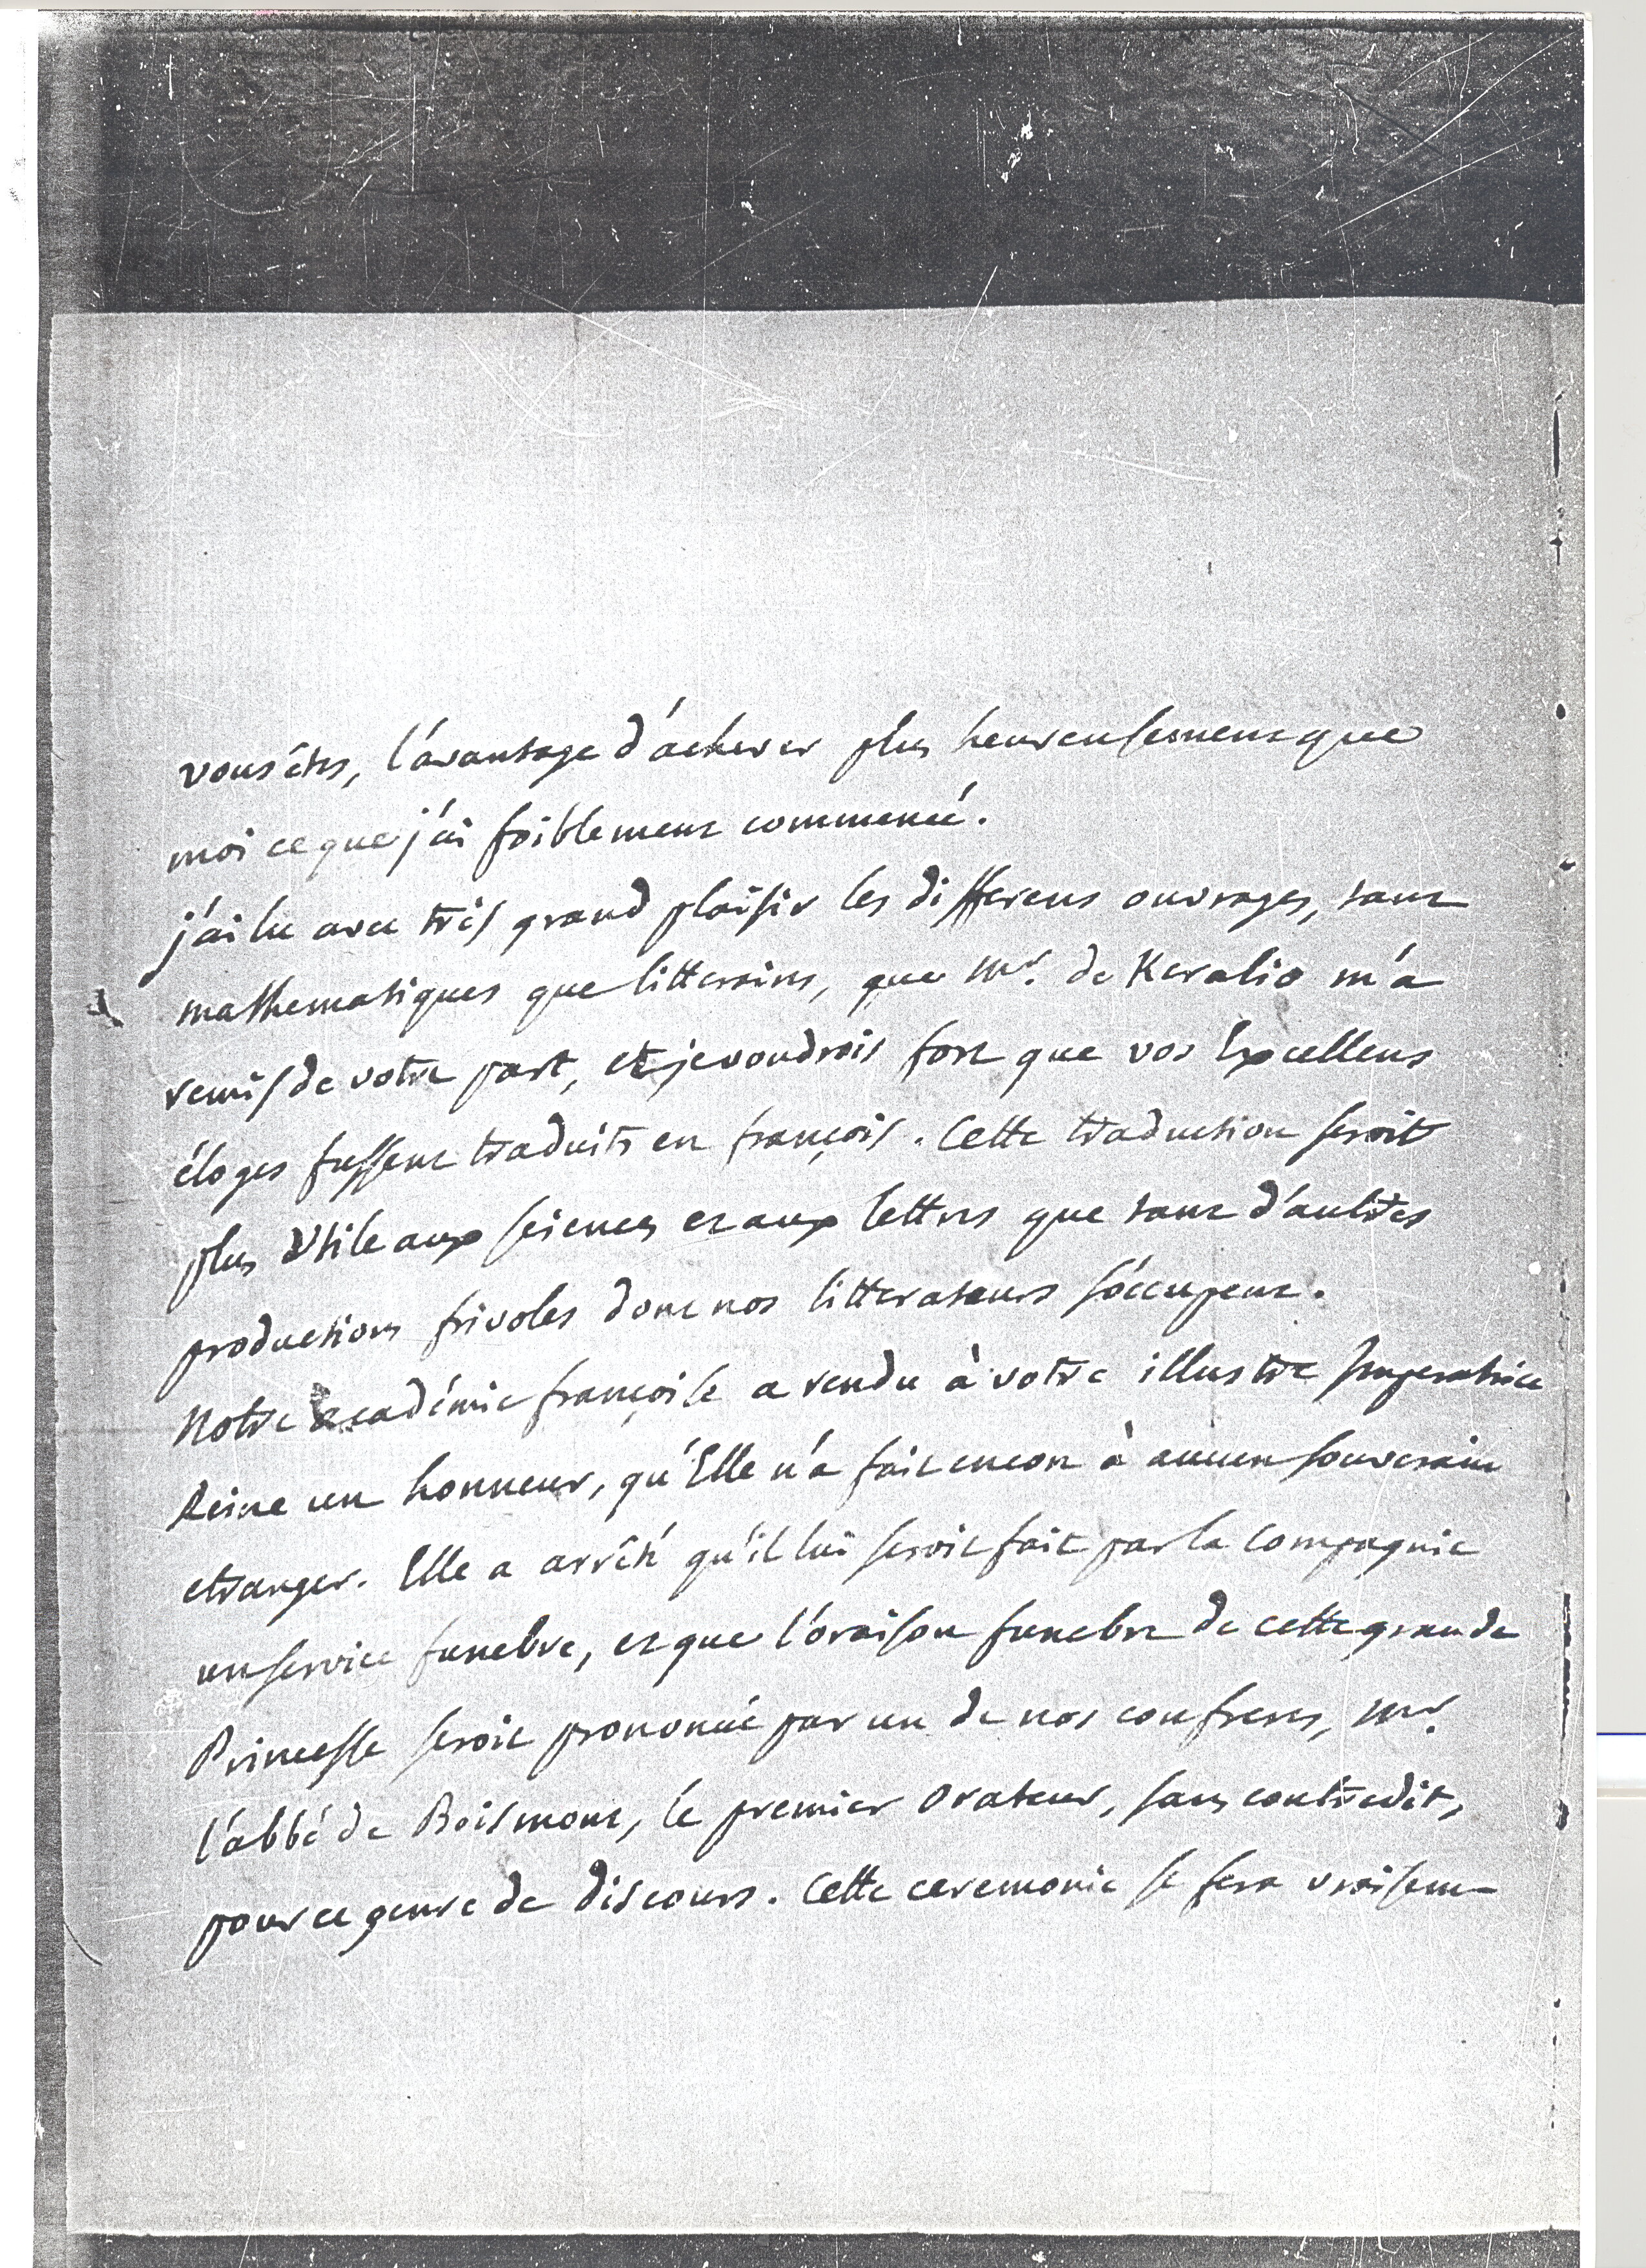 vous êtes, l'avantage d'achever plus heureusement que
moi ce que j'ai foiblement commencé.
j'ai lu avec très grand plaisir les differens ouvrages, tant
mathematiques que litteraires, que mr. de Keralio m'a
remis de votre part, et je voudrois fort que vos Excellens
éloges fussent traduits en françois. Cette traduction seroit
plus Utile aux sciences et aux lettres que tant d'autres
productions frivoles dont nos litterateurs s'occupent.
Notre académie françoise a rendu à votre illustre Imperatrice
Reine un honneur, qu'Elle n'a fait encore à aucun souverain
etranger. Elle a arrêté qu'il lui seroit fait par la Compagnie
un service funebre, et que l'oraison funebre de cette grande
Princesse seroit prononcée par un de nos confreres, mr.
l'abbé de Boismont, le premier Orateur, sans contredit,
pour ce genre de discours. Cette ceremonie se fera vraisem-